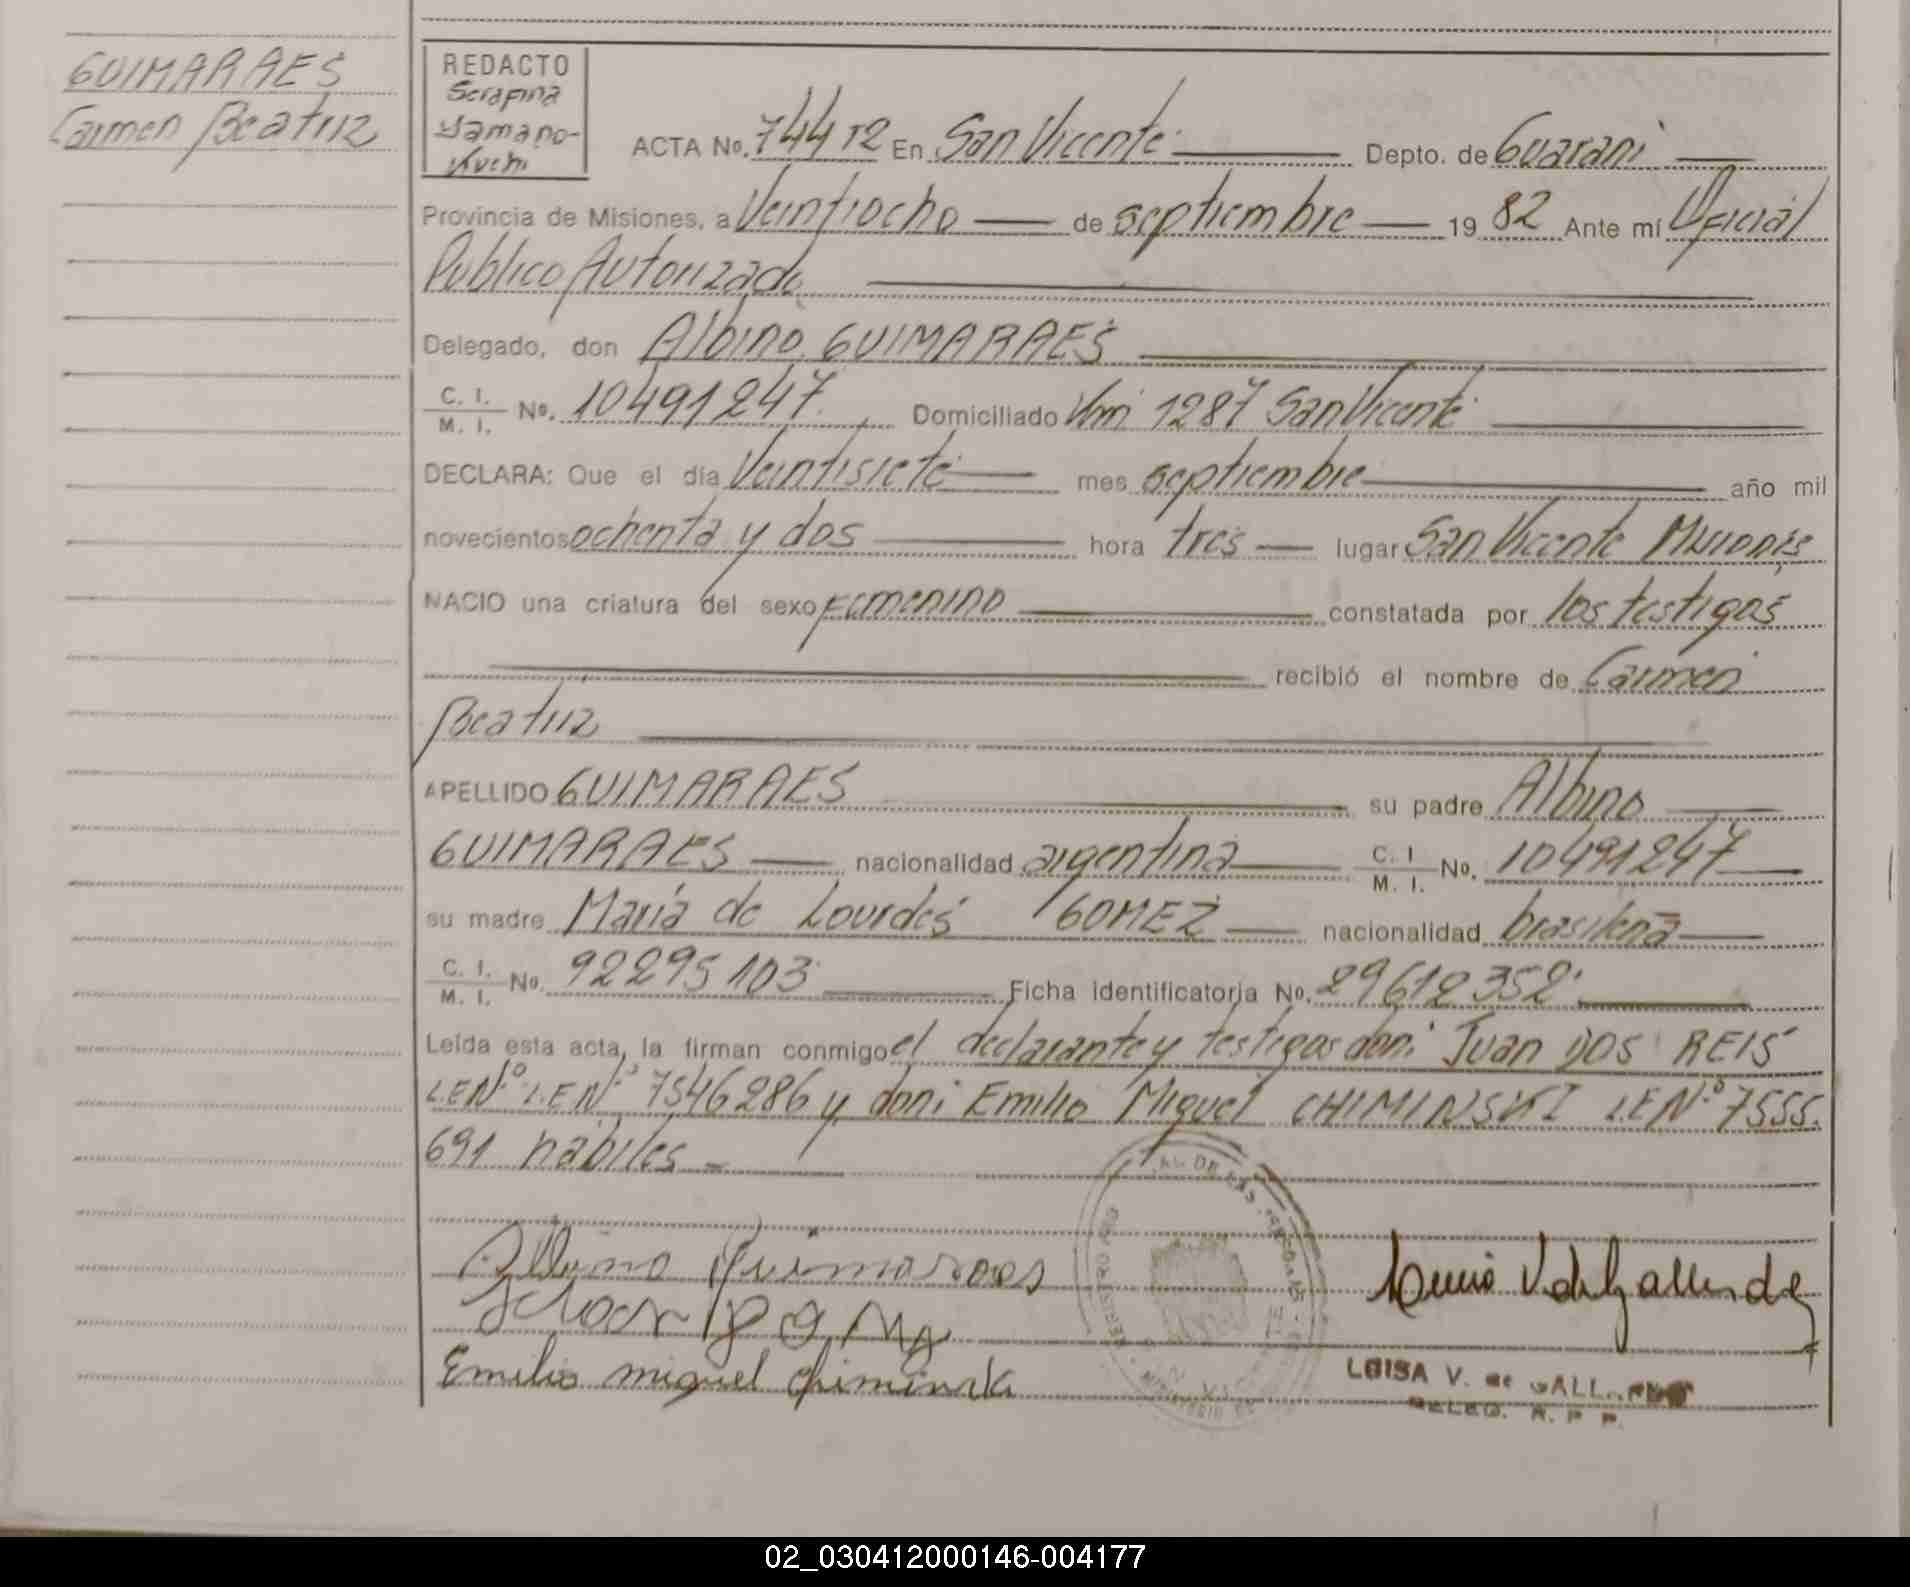 GUIMARAES
Carmen Beatriz
REDACTO
Serafina
Yamano-
kuchi
ACTA No. 744 T2 En San Vicente Depto. de Guarani
Provincia de Misiones, a Veintiocho de septiembre 19 82 Ante mí Oficial
Publico Autorizado
Delegado, don Albino GUIMARAES
C. I.
M. I. No. 10491247 Domiciliado Km 1287 San Vicente
DECLARA: Que el día Veintisiete mes septiembre año mil
novecientos ochenta y dos hora tres lugar San Vicente Misiones
NACIO una criatura del sexo femenino constatada por los testigos
recibió el nombre de Carmen
Beatriz
APELLIDO GUIMARAES su padre Albino
GUIMARAES nacionalidad argentina C. I. M. I. No. 10491247
su madre María de Lourdes GOMEZ nacionalidad brasileña
C. I.
M. I. No. 92295103 Ficha identificatoria No. 29612352
Leída esta acta, la firman conmigo el declarante y testigos don: Juan DOS REIS
L.E Nº L.E Nº 7546286 y don: Emilio Miguel CHIMINSKI L.E Nº 7555.
691 hábiles
Albino Guimaraes
Emilio miguel chiminski
LUISA V. de GALLARDO
DELEG. R. P. P.
02_030412000146-004177